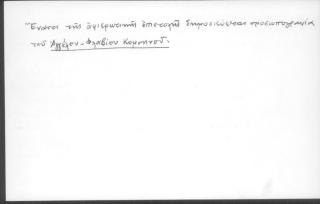 Ἔναντι τῆς ἀφιερωτικῆς ἐπιστολῆς δημοσιεύεται προσωπογραφία
τοῦ Ἀγγέλου-Φλαβίου Κομνηνοῦ.